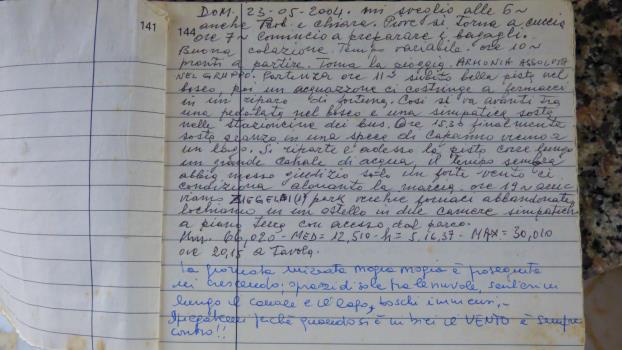 141
144
DOM. 23-05-2004. mi sveglio alle 5~
anche e chiara. Piove si torna a cuccia
ore 7~ comincio a preparare i bagagli.
Buona colazione. Tempo variabile. ore 10~
pronti a partire. Torna la pioggia. ARMONIA ASSOLUTA
NEL GRUPPO. Partenza ore 11 subito bella pista nel
bosco, poi un acquazzone ci costringe a fermarci
in un riparo di fortuna. Così si va avanti tra
una pedalata nel bosco e una simpatica sosta
nelle stazioncine dei bus. Ore 15.30 finalmente
sosta pranzo in una specie di Capanno vicino a
un lago. Si riparte e adesso la pista corre lungo
un grande Canale di acqua, il tempo sembra
abbia messo giudizio solo un forte vento ci
condiziona alquanto la marcia. ore 19~ arri
viamo vecchie fornaci abbandonate
lochiamo in un ostello in due camere simpatiche
a piano terra con acesso dal parco.
Km. 66,020 - MED = 12,510 - h = 5,16,37 - MAX = 30,010
ore 20,15 a Tavola.
La giornata iniziata mogia mogia è proseguita
in crescendo: sprazzi di sole fra le nuvole, sentieri
lungo il canale e il lago, boschi immensi;-
Spiegatemi perchè quando si è in bici il VENTO è sempre
contro!!